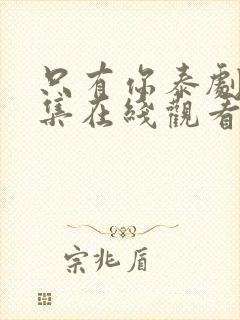 只有你泰劇
集在綫觀看
宗兆盾